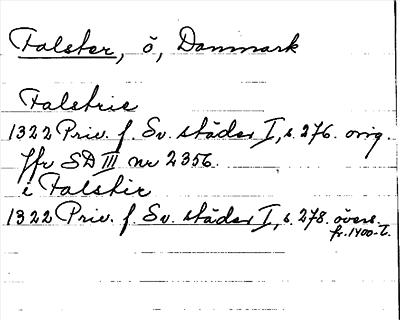 Falster, ö, Danmark
Falstrie
1322 Priv. f. Sv. städer I, s. 276. orig.
jfr SD III nr 2356.
i Falstir
1322 Priv. f. Sv. städer I, s. 278. övers.
fr. 1400-t.